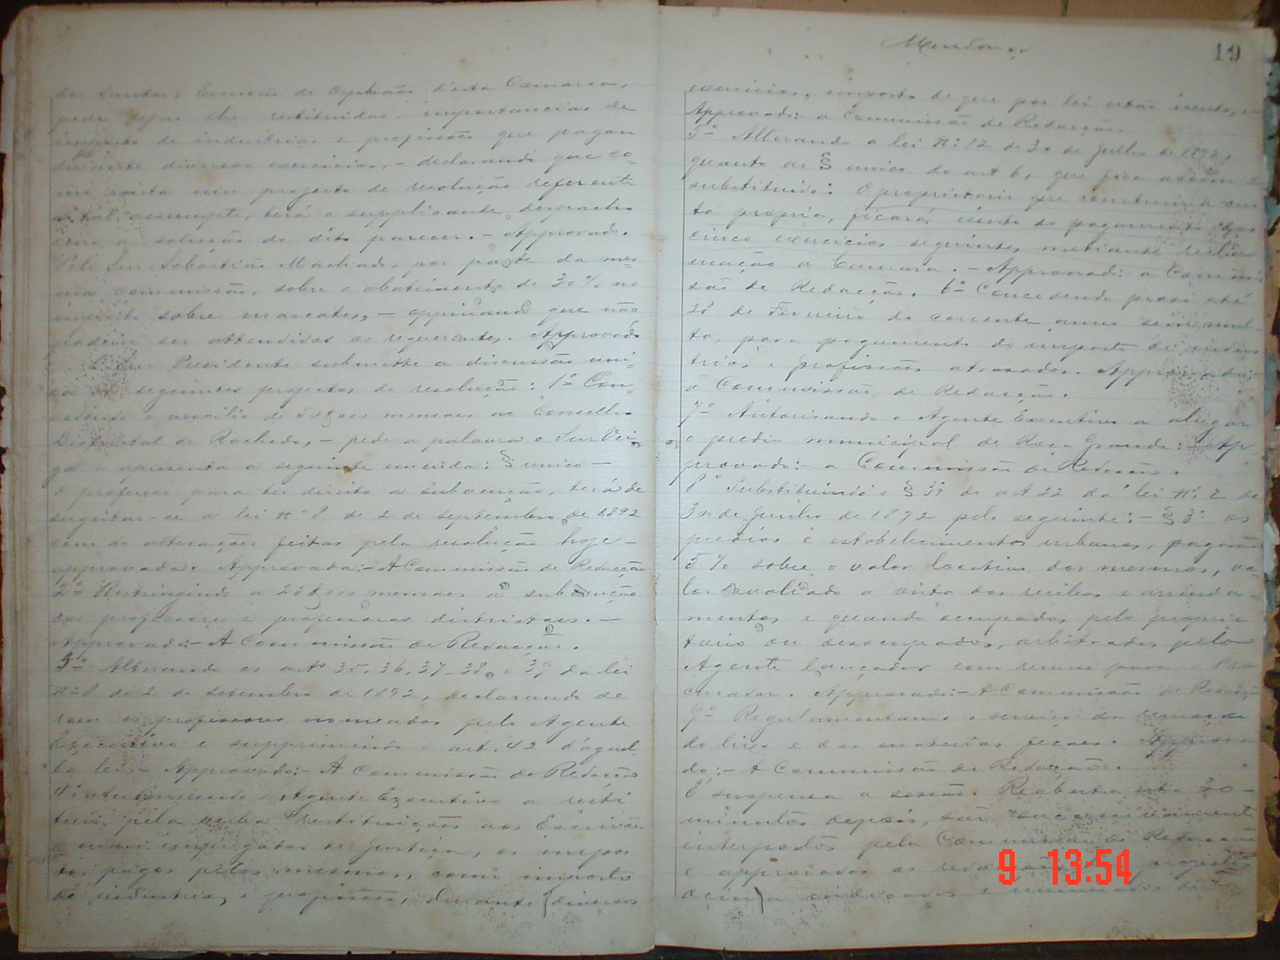 dos Santos, Escrivão de Orphãos d'esta Comarca,
pede sejão lhe restituidas importancias de
imposto de industrias e profissões que pagou
durante diversos exercicios, - declarando que co-
mo exista um projecto de resolução referente
a tal assumpto, terá o supplicante despacho
com a solução do dito parecer. - Approvado.
Pelo Snr Sebastião Machado, por parte da mes-
ma commissão, sobre o abatimento de 30% no
imposto sobre mascates, - oppinando que não
podem ser attendidos os requerentes. Approvado
O Snr Presidente submette a discussão uni-
ca os seguintes projectos de resolução: 1º Con-
cedendo o auxilio de mensaes ao Conselho
Districtal de Rochedo, - pede a palavra o Snr Vei-
ga e apresenta a seguinte emenda: § unico -
o professor para ter direito a subvenção, terá de
sugeitar-se a lei nº 8 de 2 de septembro de 1892
com as alterações feitas pela resolução hoje -
approvada. Approvada: - A Commissão de Redacção
2º Restringindo a 25$000 mensaes a subvenção
dos professores e professoras districtaes. -
Approvado: - A Commissão de Redacção.
3º Alterando os artos 35, 36, 37, 38 e 39 da lei
nº 8 de 2 de setembro de 1892, declarando se-
rem os professores nomeados pelo Agente
Executivo e supprimindo o art. 42 d'aquel-
la lei. Approvado: - A Commissão de Redacção
4º Autorisando o Agente Executivo a resti-
tuir pela verba restituições aos Escrivães
e mais empregados de Justiça, os impos-
tos pagos pelos mesmos, como imposto
de industrias e profissões, durante diversos
Mendonça
19
exercicios, imposto de que por lei estão isentos.
Approvado: a Commissão de Redacção.
5º Alterando a lei nº 12 de 30 de Julho de 1892,
quanto ao § unico do art 6, que fica assim
substituido: O proprietario que construir a cus-
ta propria, ficará isento do pagamento nos
cinco exercicios seguintes, mediante recla-
mação a Camara. - Approvado: a Commis-
são de Redacção. 6º Concedendo praso até
28 de Fevereiro do corrente anno sem mul-
ta, para pagamento do imposto de indus-
trias e profissões atrasados. Approvado:
a Commissão de Redacção.
7º Autorisando o Agente Executivo a alugar
o predio municipal de Roça Grande: Ap-
provado: - a Commissão de Redacção.
8º Substituindo o § 3º do art 22 da lei nº 2 de
30 de Junho de 1892 pelo seguinte: - § 3º os
predios e estabelecimentos urbanos, pagarão
5% sobre o valor locativo dos mesmos, va-
lor avaliado a vista dos recibos e arrenda-
mentos e quando occupados pelo proprie-
tario ou desoccupados, arbitrados pelo
Agente lançador com recurso para o Pro-
curador. Approvado: - A Commissão de Redacção
9º Regulamentando o serviço da
do lixo e das materias fecaes. Approva-
do: - A Commissão de Redacção.
É suspensa a sessão. Reaberta 30
minutos depois, são
pela Commissão de Redacção
e approvados as
e
9 13:54